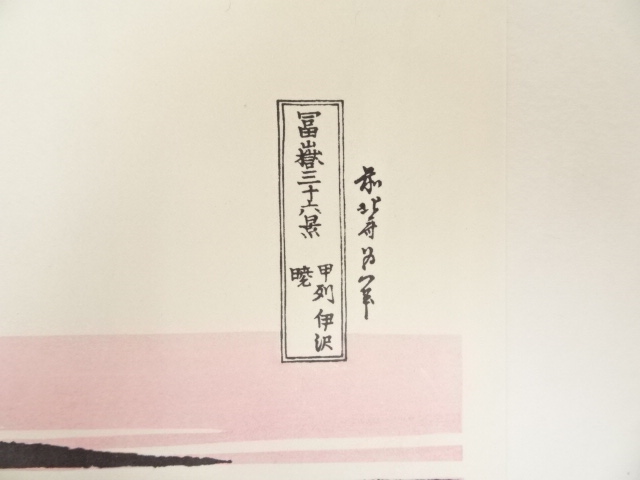 前北斎為一筆
冨嶽三十六景
甲列伊沢
暁